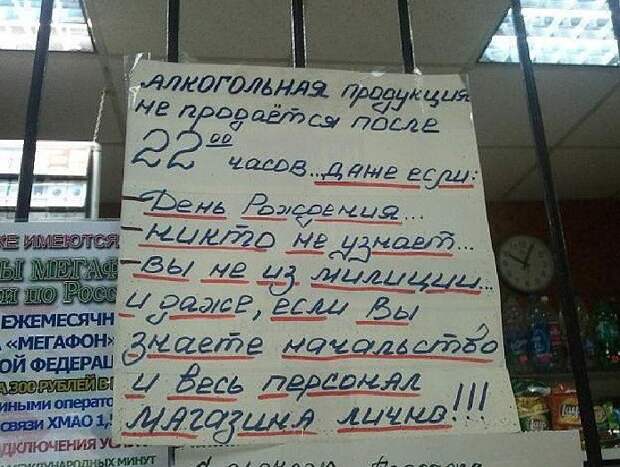 АЛКОГОЛЬНАЯ продукция
не продаётся после
22⁰⁰ часов.. даже если:
– День Рождения...
– никто не узнает...
– вы не из милиции...
и даже, если Вы
знаете начальство
и весь персонал
магазина лично!!!
ИМЕЮТСЯ
МЕГАФ
по Росс
ЕЖЕМЕСЯЧН
«МЕГАФОН»
ОЙ ФЕДЕРАЦ
300 РУБЛЕЙ В
ИНЫМИ операто
связи ХМАО 1,5
ДКЛЮЧЕНИЯ УСЛ
МЕЖДУНАРОДНЫХ МИНУТ